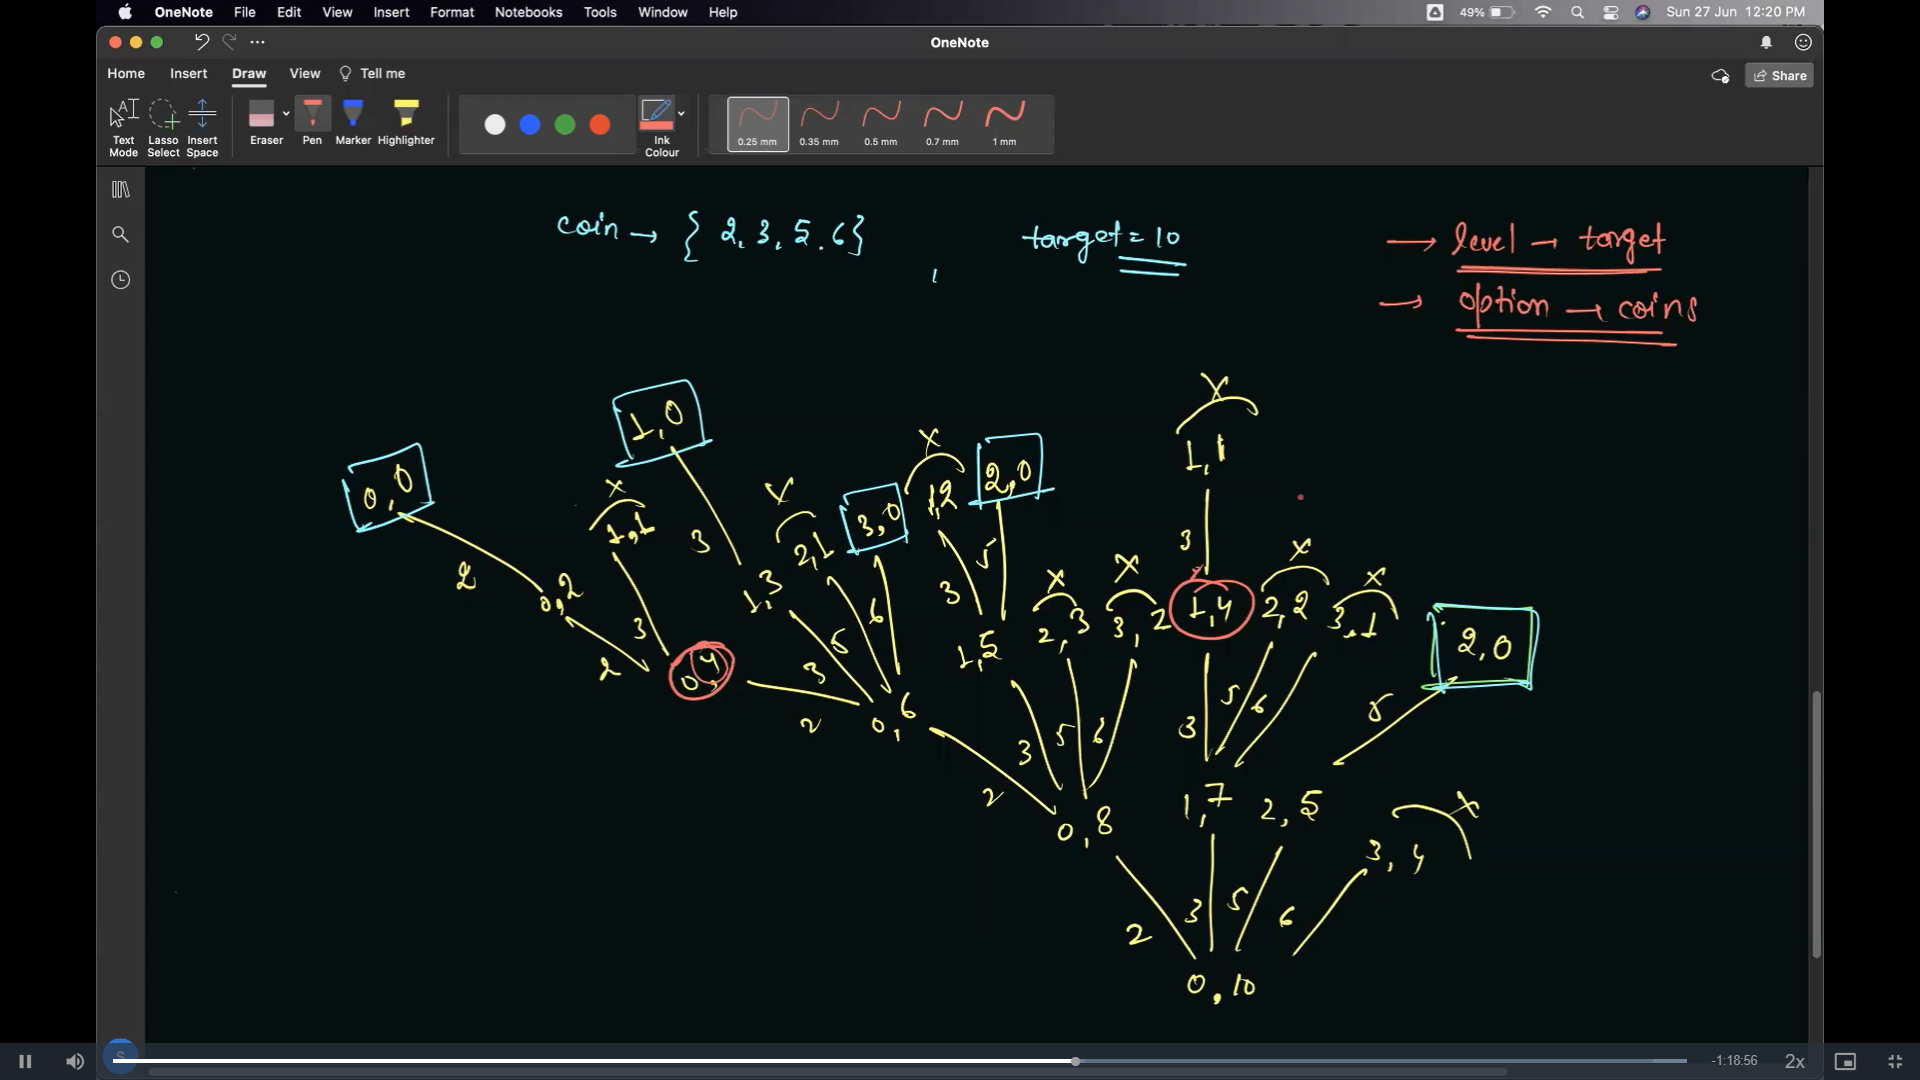 OneNote File Edit View Insert Format Notebooks Tools Window Help 49% Sun 27 Jun 12:20 PM
OneNote
Home Insert Draw View Tell me Share
Text Mode Lasso Select Insert Space Eraser Pen Marker Highlighter Ink Colour 0.25 mm 0.35 mm 0.5 mm 0.7 mm 1 mm
coin → { 2, 3, 5. 6} target = 10 → level → target
→ option → coins
x
1,0
x 1,1
0,0 x x 3,0 x 1,2 2,0
1,1 3 2,1 3
2 0,2 1,3 6 3 5 x x 1,4 x 2,2 x 3,1
2 3 0,4 5 1,5 2,3 3,2 2,0
3 5 6 5
2 0,6 3 5 6 3
2 0,8 1,7 2,5 x
3,4
2 3 5 6
0,10
-1:18:56 2x